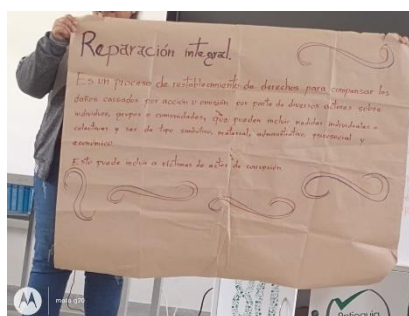 Reparación integral.
Es un proceso de restablecimiento de derechos para compensar los
daños causados por acción u omisión por parte de diversos actores sobre
individuos, grupos o comunidades, que pueden incluir medidas individuales o
colectivas y ser de tipo simbólico, material, administrativo, psicosocial y
económico.
Esto puede incluir a víctimas de actos de corrupción
moto g20